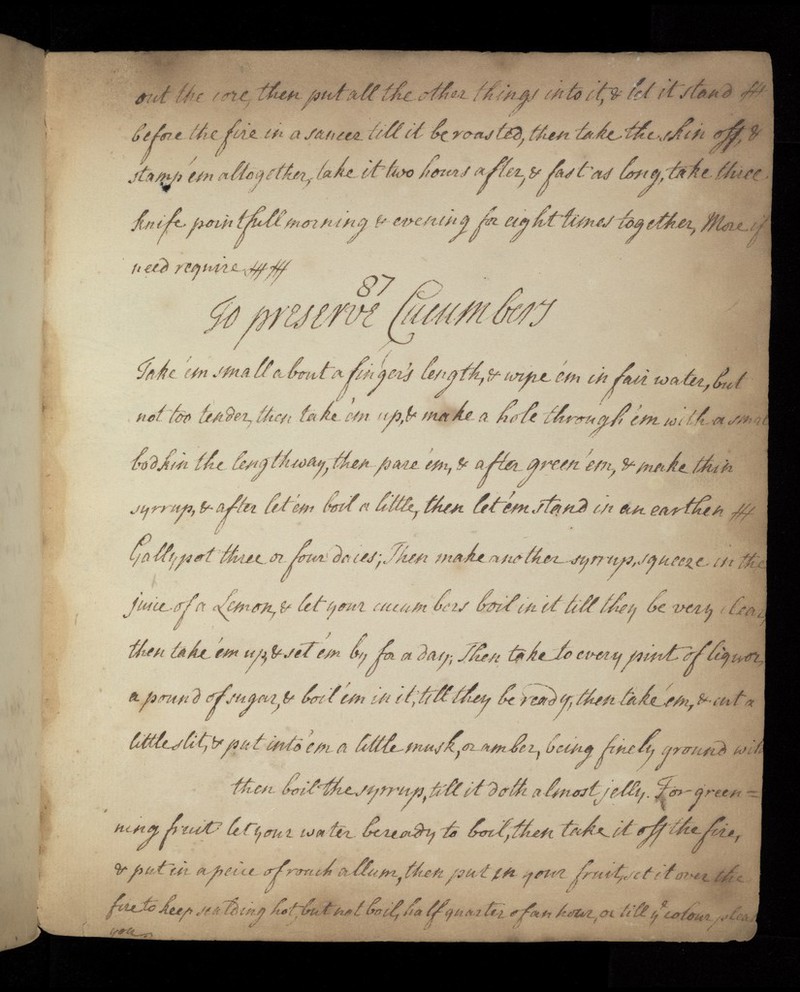 out the core, then put all the other things into it, & let it stand
before the fire in a saucer till it be roasted, then take the skin off, &
stamp 'em altogether, take it two hours after, & fast as long, take three
knife pointfull morning & evening for eight times together, More if
need require
87
To preserve Cucumbers
Take 'em small about a finger's length, & wipe 'em in fair water, but
not too tender, then take 'em up, & make a hole through 'em with a small
bodkin the lengthway, then pare 'em, & after green 'em, & make thin
syrrup, & after let 'em boil a little, then let 'em stand in an earthen
Gallypot three or four daies; Then make another syrrup, squeeze in the
juice of a Lemon, & let your cucumbers boil in it till they be very clear,
then take 'em up, & set 'em by for a day; Then take to every pint of liquor,
a pound of sugar, & boil 'em in it, till they be ready, then take 'em, & cut a
little slit, & put into 'em a little musk, or amber, being finely ground with
then boil the syrrup, till it doth almost jelly. For green=
ning fruit let your water be ready to boil, then take it off the fire,
& put in a peice of roach allum, then put in your fruit, set it over the
fire to keep scalding hot, but not boil, half quarter of an hour, or till ye colour please
you